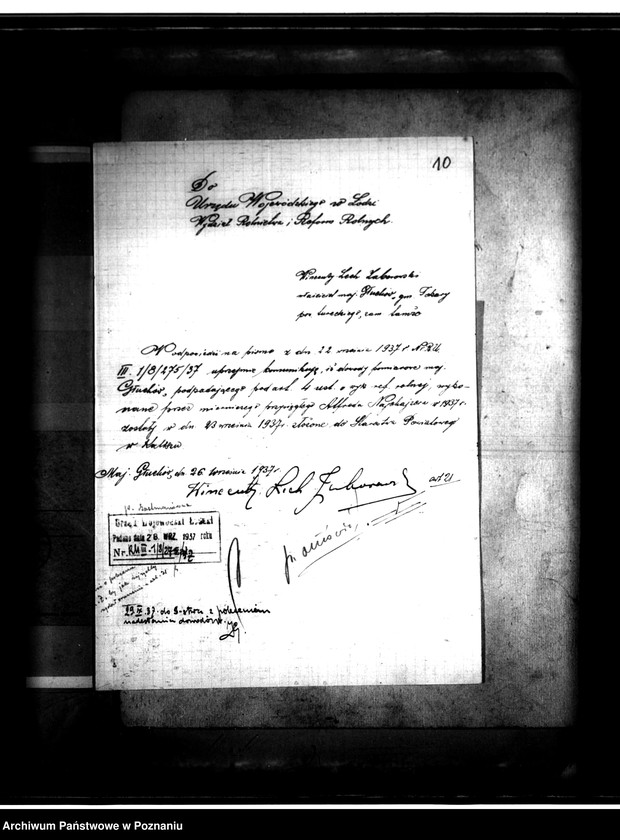 10
Do
Urzędu Wojewódzkiego w Łodzi
Wydział Rolnictwa i Reform Rolnych.
Wincenty Lech Zaborowski
właściciel maj. Głuchów, gm Tokary
pow tureckiego, zam tamże
W odpowiedzi na pismo z dn 22 września 1937 r N RU
III. 1/8/275/37 uprzejmie komunikuję, iż dowody pomiarowe maj.
Głuchów, podpadającego pod art. ust. o wyk ref rolnej, wyko-
nane przez mierniczego przysięgłego Alfreda w 1937 r.
zostały w dn 23 września 1937 r. złożone do Starostwa Powiatowego
w
Maj. Głuchów, dn. 26 września 1937 r.
Wincenty Lech Zaborowski
Urząd Wojewódzki Łódzki
Podano dnia 28. WRZ. 1937 roku
Nr. RU III-1/8/
29 IX 37. do S-stwa z poleceniem
nadesłania dowodów.
Archiwum Państwowe w Poznaniu